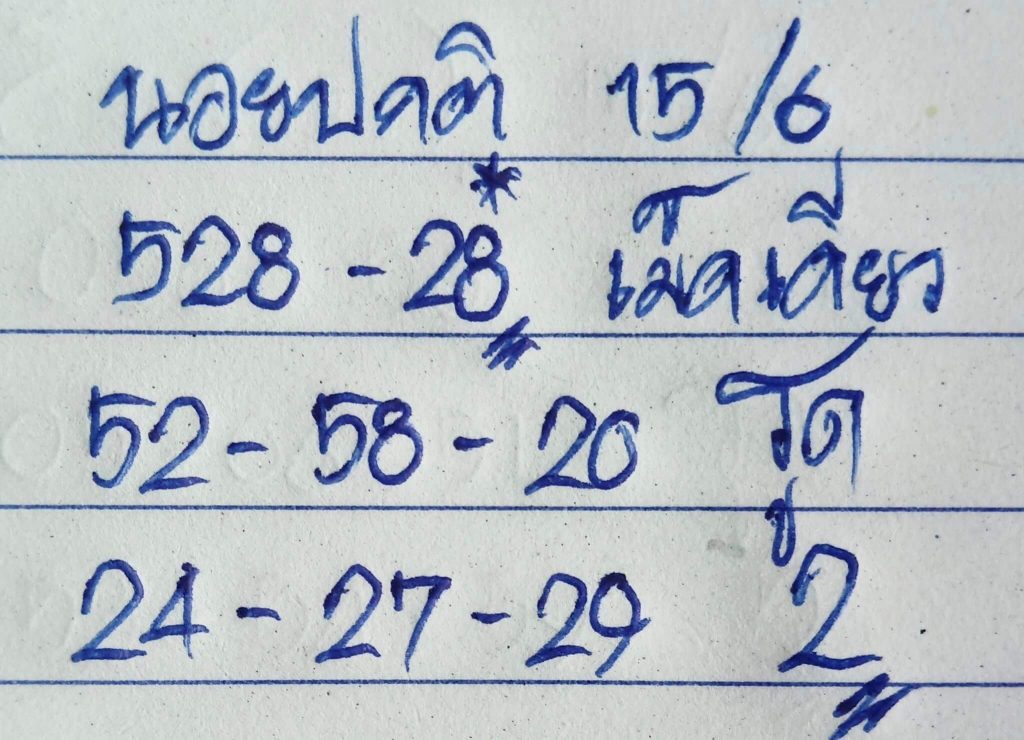 นอยปกติ 15/6
528 - 28 * เม็ดเดียว
52 - 58 - 20 รูด
24 - 27 - 29 2